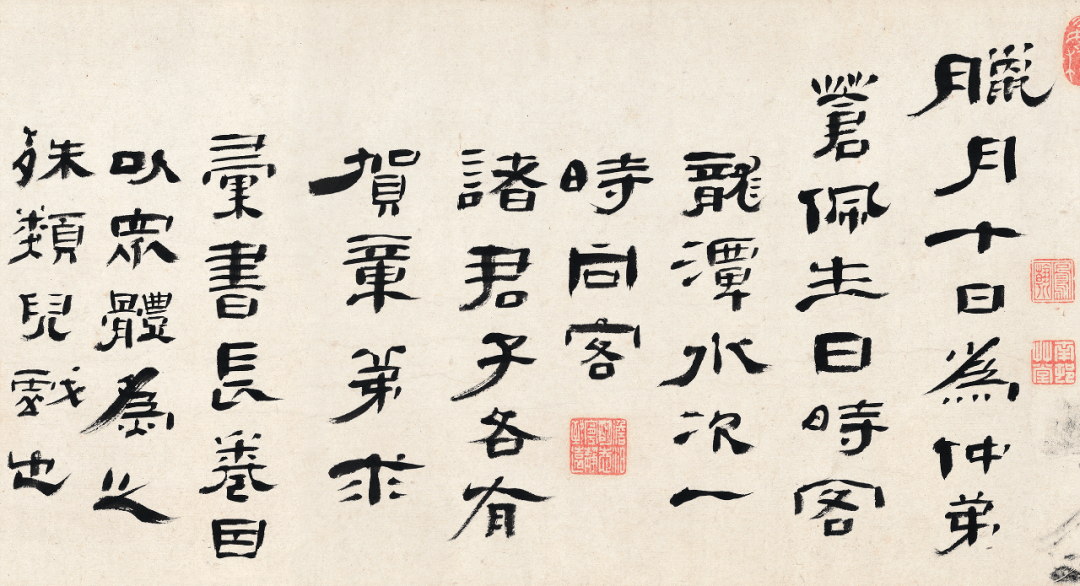 臘月十日為仲弟
蒼佩生日時客
龍潭水次一
時同客
諸君子各有
賀章弟求
彙書長卷因
以眾體為之
殊類兒戲也